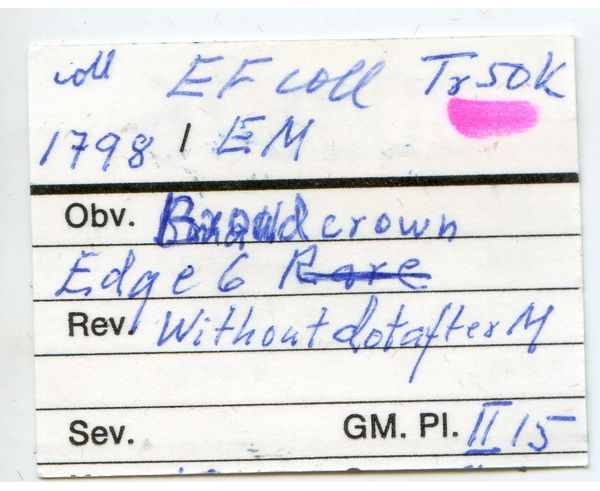 coll EF coll Tr 50K
1798 1 EM
Obv. Broad crown
Edge 6 Rare
Rev. Without dot after M
Sev. GM. Pl. II 15